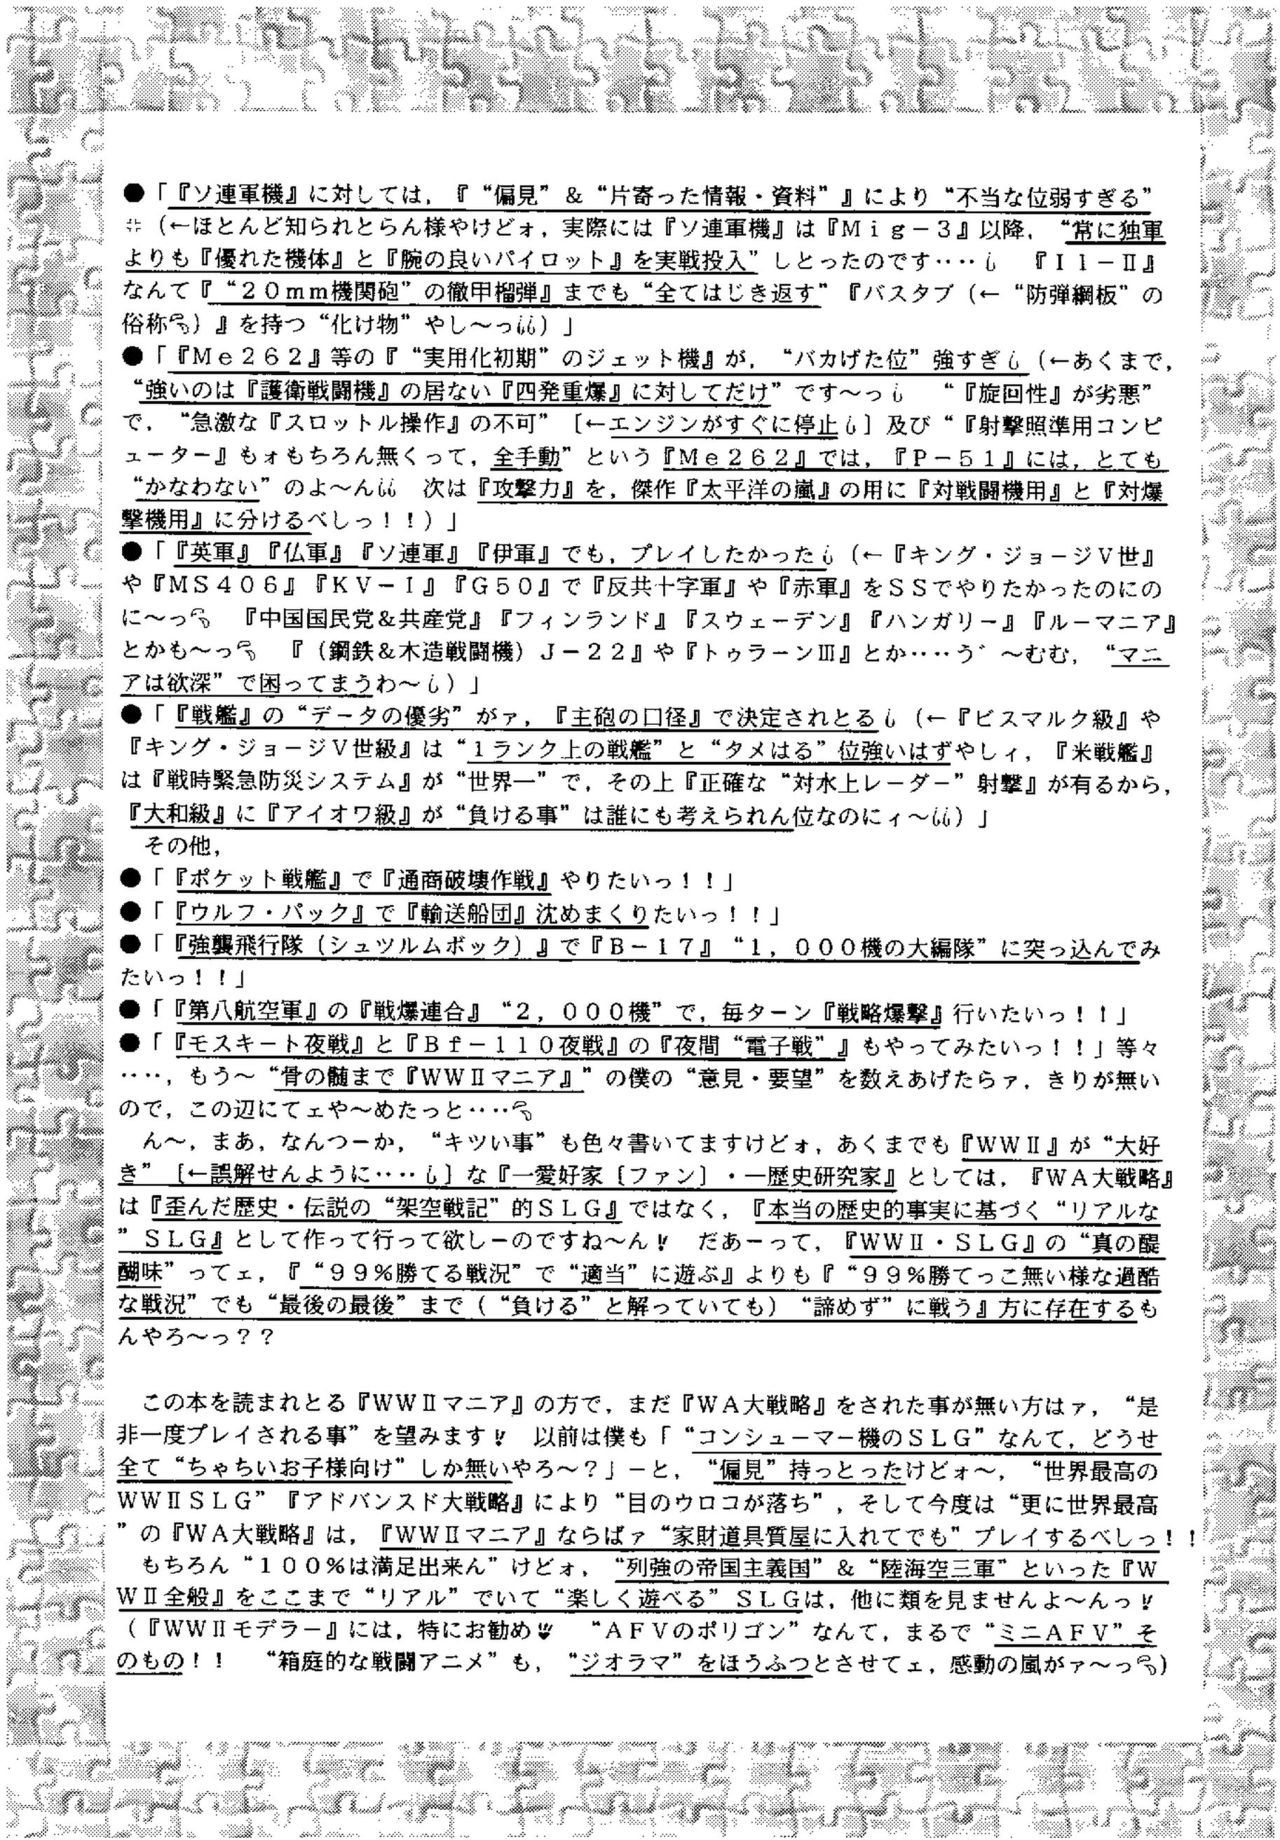 ●「『ソ連軍機』に対しては，『“偏見”＆“片寄った情報・資料”』により“不当な位弱すぎる”
（←ほとんど知られとらん様やけどォ，実際には『ソ連軍機』は『Ｍｉｇ－３』以降，“常に独軍
よりも『優れた機体』と『腕の良いパイロット』を実戦投入”しとったのです‥‥　『Ｉｌ－Ⅱ』
なんて『“２０ｍｍ機関砲”の徹甲榴弾』までも“全てはじき返す”『バスタブ（←“防弾鋼板”の
俗称）』を持つ“化け物”やし～っ）」
●「『Ｍｅ２６２』等の『“実用化初期”のジェット機』が，“バカげた位”強すぎ（←あくまで，
“強いのは『護衛戦闘機』の居ない『四発重爆』に対してだけ”です～っ　“『旋回性』が劣悪”
で，“急激な『スロットル操作』の不可”［←エンジンがすぐに停止］及び“『射撃照準用コンピ
ューター』もォもちろん無くって，全手動”という『Ｍｅ２６２』では，『Ｐ－５１』には，とても
“かなわない”のよ～ん　次は『攻撃力』を，傑作『太平洋の嵐』の用に『対戦闘機用』と『対爆
撃機用』に分けるべしっ！！）」
●「『英軍』『仏軍』『ソ連軍』『伊軍』でも，プレイしたかった（←『キング・ジョージⅤ世』
や『ＭＳ４０６』『ＫＶ－Ⅰ』『Ｇ５０』で『反共十字軍』や『赤軍』をＳＳでやりたかったのにの
に～っ　『中国国民党＆共産党』『フィンランド』『スウェーデン』『ハンガリー』『ルーマニア』
とかも～っ　『（鋼鉄＆木造戦闘機）Ｊ－２２』や『トゥラーンⅢ』とか‥‥う゛～むむ，“マニ
アは欲深”で困ってまうわ～）」
●「『戦艦』の“データの優劣”がァ，『主砲の口径』で決定されとる（←『ビスマルク級』や
『キング・ジョージⅤ世級』は“１ランク上の戦艦”と“タメはる”位強いはずやしィ，『米戦艦』
は『戦時緊急防災システム』が“世界一”で，その上『正確な“対水上レーダー”射撃』が有るから，
『大和級』に『アイオワ級』が“負ける事”は誰にも考えられん位なのにィ～）」
その他，
●「『ポケット戦艦』で『通商破壊作戦』やりたいっ！！」
●「『ウルフ・パック』で『輸送船団』沈めまくりたいっ！！」
●「『強襲飛行隊（シュツルムボック）』で『Ｂ－１７』“１，０００機の大編隊”に突っ込んでみ
たいっ！！」
●「『第八航空軍』の『戦爆連合』“２，０００機”で，毎ターン『戦略爆撃』行いたいっ！！」
●「『モスキート夜戦』と『Ｂｆ－１１０夜戦』の『夜間“電子戦”』もやってみたいっ！！」等々
‥‥，もう～“骨の髄まで『ＷＷⅡマニア』”の僕の“意見・要望”を数えあげたらァ，きりが無い
ので，この辺にてェや～めたっと‥‥
ん～，まあ，なんつーか，“キツい事”も色々書いてますけどォ，あくまでも『ＷＷⅡ』が“大好
き”［←誤解せんように‥‥］な『一愛好家［ファン］・一歴史研究家』としては，『ＷＡ大戦略』
は『歪んだ歴史・伝説の“架空戦記”的ＳＬＧ』ではなく，『本当の歴史的事実に基づく“リアルな
”ＳＬＧ』として作って行って欲しーのですね～ん　だあーって，『ＷＷⅡ・ＳＬＧ』の“真の醍
醐味”ってェ，『“９９％勝てる戦況”で“適当”に遊ぶ』よりも『“９９％勝てっこ無い様な過酷
な戦況”でも“最後の最後”まで（“負ける”と解っていても）“諦めず”に戦う』方に存在するも
んやろ～っ？？
この本を読まれとる『ＷＷⅡマニア』の方で，まだ『ＷＡ大戦略』をされた事が無い方はァ，“是
非一度プレイされる事”を望みます　以前は僕も「“コンシューマー機のＳＬＧ”なんて，どうせ
全て“ちゃちいお子様向け”しか無いやろ～？」－と，“偏見”持っとったけどォ～，“世界最高の
ＷＷⅡＳＬＧ”『アドバンスド大戦略』により“目のウロコが落ち”，そして今度は“更に世界最高
”の『ＷＡ大戦略』は，『ＷＷⅡマニア』ならばァ“家財道具質屋に入れてでも”プレイするべしっ！！
もちろん“１００％は満足出来ん”けどォ，“列強の帝国主義国”＆“陸海空三軍”といった『Ｗ
ＷⅡ全般』をここまで“リアル”でいて“楽しく遊べる”ＳＬＧは，他に類を見ませんよ～んっ
（『ＷＷⅡモデラー』には，特にお勧め　“ＡＦＶのポリゴン”なんて，まるで“ミニＡＦＶ”そ
のもの！！　“箱庭的な戦闘アニメ”も，“ジオラマ”をほうふつとさせてェ，感動の嵐がァ～っ）